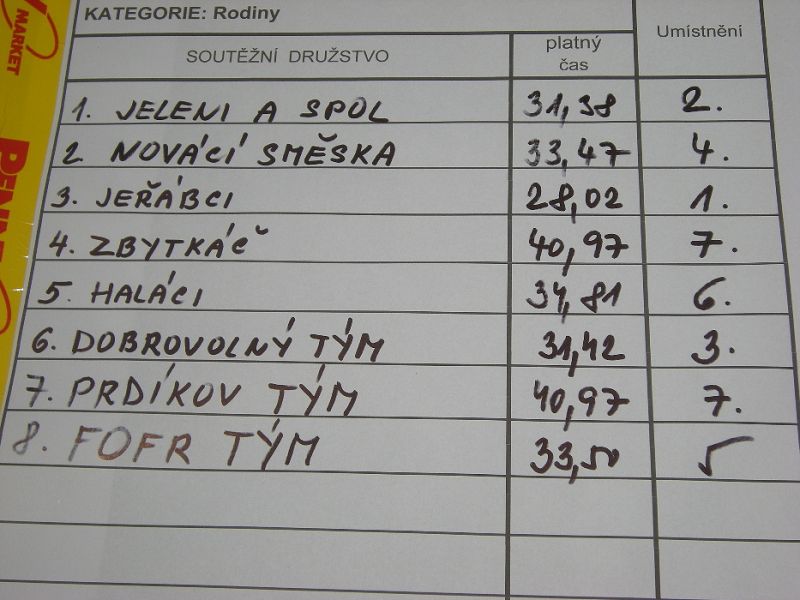 MARKET
PENN
KATEGORIE: Rodiny
SOUTĚŽNÍ DRUŽSTVO platný čas Umístnění
1. JELENI A SPOL 31,38 2.
2. NOVÁCÍ SMĚSKA 33,47 4.
3. JEŘÁBCI 28,02 1.
4. ZBYTKÁČ 40,97 7.
5. HALÁCI 34,81 6.
6. DOBROVOLNÝ TÝM 31,42 3.
7. PRDÍKOV TÝM 40,97 7.
8. FOFR TÝM 33,50 5